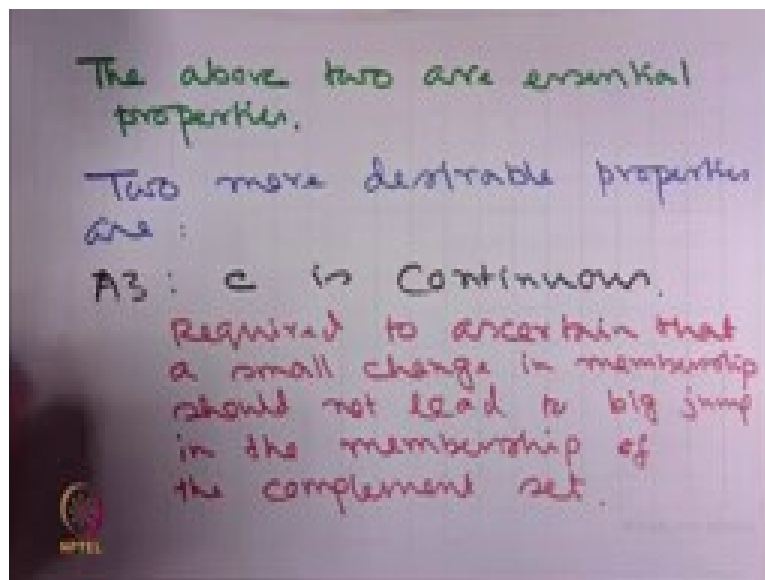 The above two are essential
properties.
Two more desirable properties
are :
A3 : c is Continuous.
Required to ascertain that
a small change in membership
should not lead to big jump
in the membership of
the complement set.
NPTEL